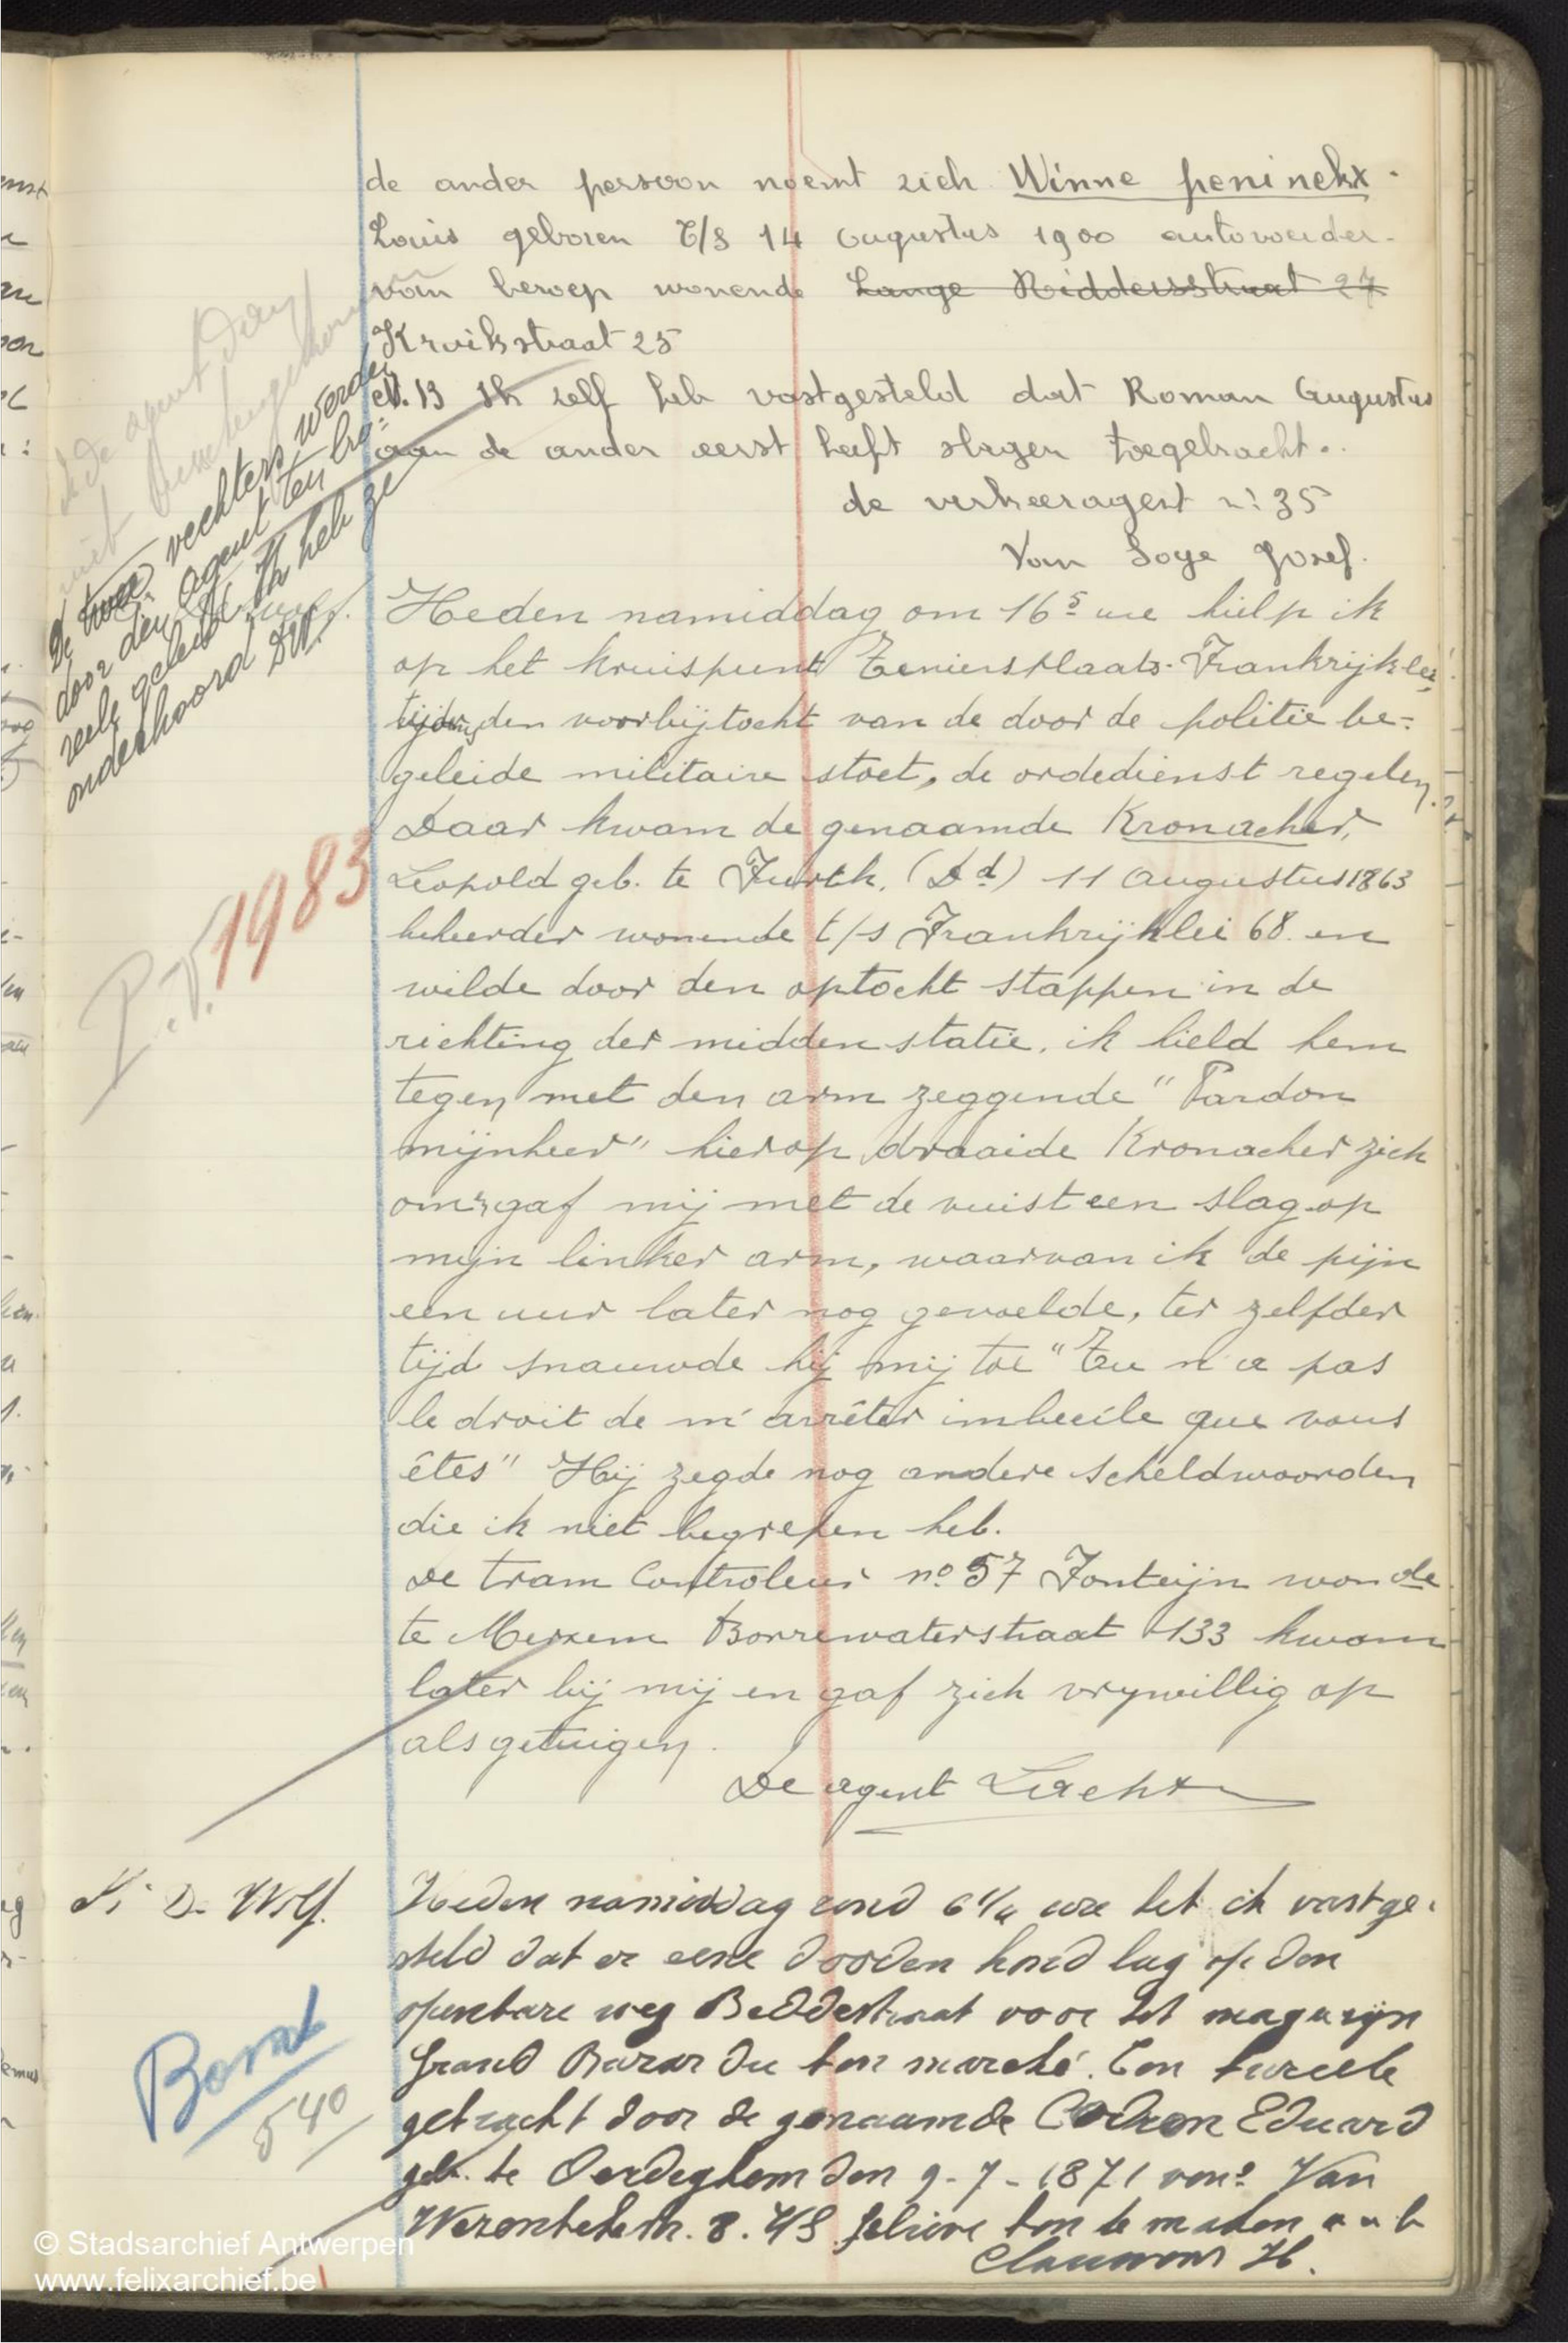 de ander persoon noemt zich Winne peninckx.
Louis geboren T/S 14 Augustus 1900 autovoerder.
van beroep wonende Lange Riddersstraat 27
Kruikstraat 25
N.B Ik zelf heb vastgesteld dat Roman Augustus
aan de ander eerst heeft slagen toegebracht.
de verkeeragent n: 35
Van Loye Josef.
De twee vechters werden
door den agent ten bro=
reele geleid. Ik heb ze
onderhoord DW.
Heden namiddag om 16⁵ ure hielp ik
op het kruispunt Teniersplaats-Frankrijklei,
tijdens den voorbijtocht van de door de politie be=
geleide militaire stoet, de ordedienst regelen.
Daar kwam de genaamde Kronacher,
Leopold geb. te Fürth. (Dd) 11 Augustus 1863
beheerder wonende t/s Frankrijklei 68 en
wilde door den optocht stappen in de
richting der midden statie. ik hield hem
tegen met den arm zeggende "Pardon
mijnheer" hierop draaide Kronacher zich
om gaf mij met de vuist een slag op
mijn linker arm, waarvan ik de pijn
een uur later nog gevoelde, ter zelfder
tijd snauwde hij mij toe "Tu n'a pas
le droit de m'arrêter imbecile que vous
êtes" Hij zegde nog andere scheldwoorden
die ik niet begrepen heb.
De tram Controleur no 57 Fonteijn wonde
te Merxem Borrewaterstraat 133 kwam
later bij mij en gaf zich vrywillig op
als getuigen.
De agent
P.V. 1983
D. Wolf.
Heden namiddag rond 6 1/4 ure heb ik vastge-
steld dat er eene dooden hond lag op den
openbare weg Beddestraat voor het magazijn
Grand Bazar du bon marché. Ten bureele
gebracht door de genaamde Codron Eduard
geb. te Oordeghem den 9-7-1871 wone Van
8. T/S gelieve bon te maken a u b
Clauwens H.
Bon
540
© Stadsarchief Antwerpen
www.felixarchief.be